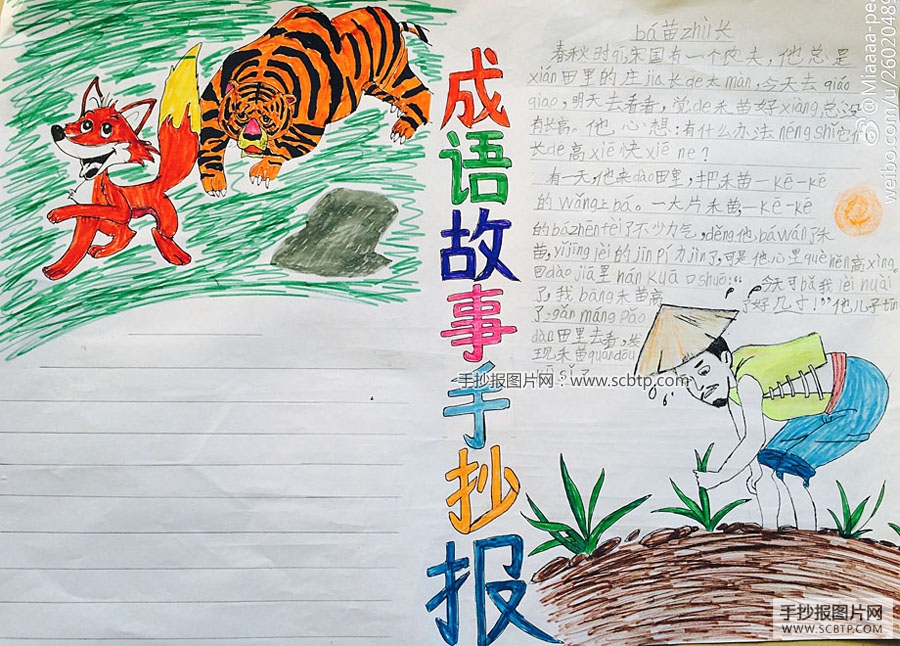 成语故事手抄报
bá苗zhù长
春秋时qī,宋国有一个农夫,他总是
xián田里的庄jia长de太màn,今天去qiáo
qiao,明天去看看,觉de禾苗好xiàng总没
有长高。他心想:有什么办法néng shǐ它们
长de高xiē快xiē ne?
有一天,他来dào田里,把禾苗一kē一kē
的wǎng上bá。一大片禾苗,一kē一kē
的bá zhēn fèi了不少力气,děng他bá wán了禾
苗,yǐjīng lèi的jīn pí力jìn了,可是他心里què hěn高xìng。
回dào家里hái kuā口shuō:"今天可bǎ我lèi huài
了,我bāng禾苗高了好几寸!"他儿子tīng
了,gǎn máng pǎo
dào田里去看,发
现禾苗quán dōu
了
手抄报图片网:www.scbtp.com
@Miaaaa-pea
weibo.com/u/26020489
手抄报图片网
WWW.SCBTP.COM